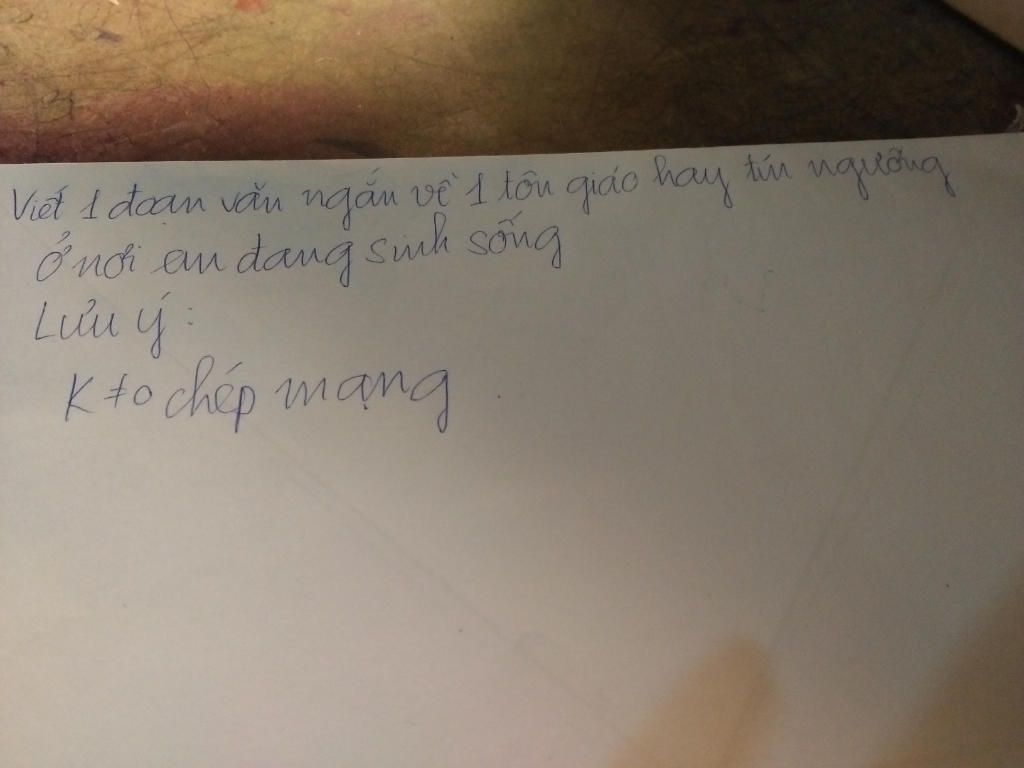 Viết 1 đoạn văn ngắn về 1 tôn giáo hay tín ngưỡng
Ở nơi em đang sinh sống
Lưu ý:
K chép mạng